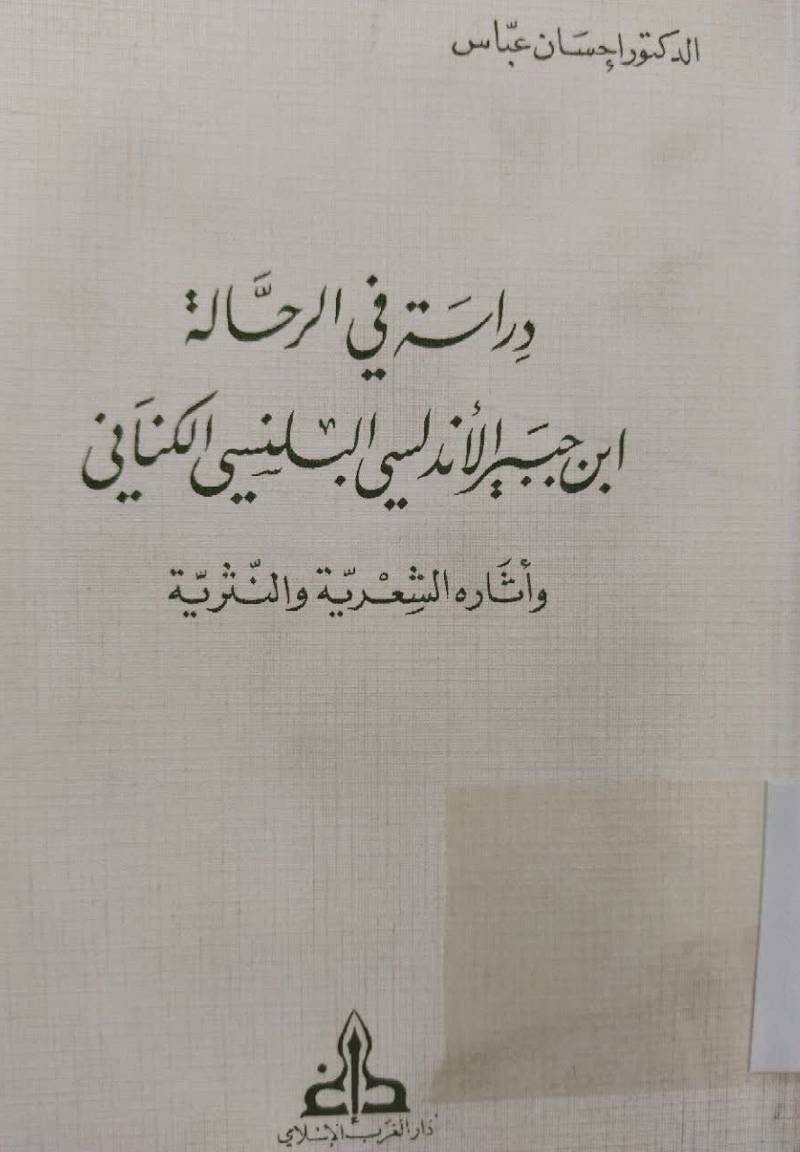 الدكتور إحسَان عبّاس
دِراسَة في الرحَّالة
ابن جبَير الأندلسي البلنسِي الكنَاني
وأثَاره الشِعْريّة والنّثريّة
دَار الغَرب الإسْلامي